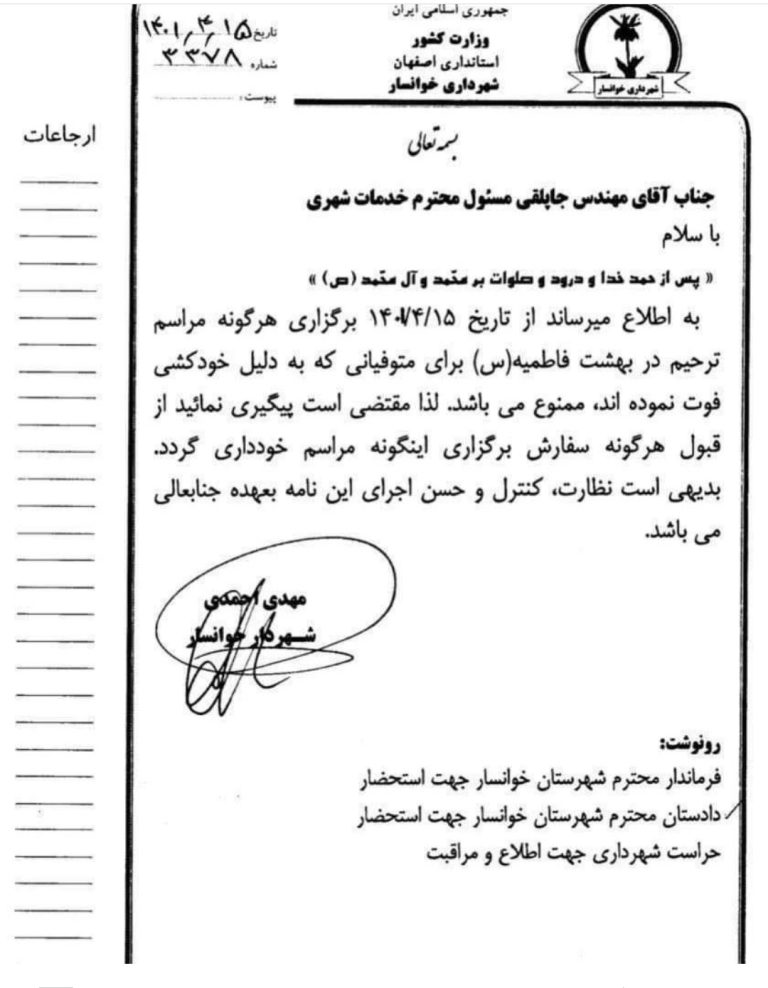 جمهوری اسلامی ایران
وزارت کشور
استانداری اصفهان
شهرداری خوانسار
شهرداری خوانسار
تاریخ ۱۴۰۱٫۴٫۱۵
شماره ۳۳۷۸
پیوست :
ارجاعات
بسمه تعالی
جناب آقای مهندس جاپلقی مسئول محترم خدمات شهری
با سلام
« پس از حمد خدا و درود و صلوات بر محمّد و آل محمّد (ص) »
به اطلاع میرساند از تاریخ ۱۴۰۱/۴/۱۵ برگزاری هرگونه مراسم
ترحیم در بهشت فاطمیه(س) برای متوفیانی که به دلیل خودکشی
فوت نموده اند، ممنوع می باشد. لذا مقتضی است پیگیری نمائید از
قبول هرگونه سفارش برگزاری اینگونه مراسم خودداری گردد.
بدیهی است نظارت، کنترل و حسن اجرای این نامه بعهده جنابعالی
می باشد.
مهدی احمدی
شهردار خوانسار
رونوشت:
فرماندار محترم شهرستان خوانسار جهت استحضار
دادستان محترم شهرستان خوانسار جهت استحضار
حراست شهرداری جهت اطلاع و مراقبت